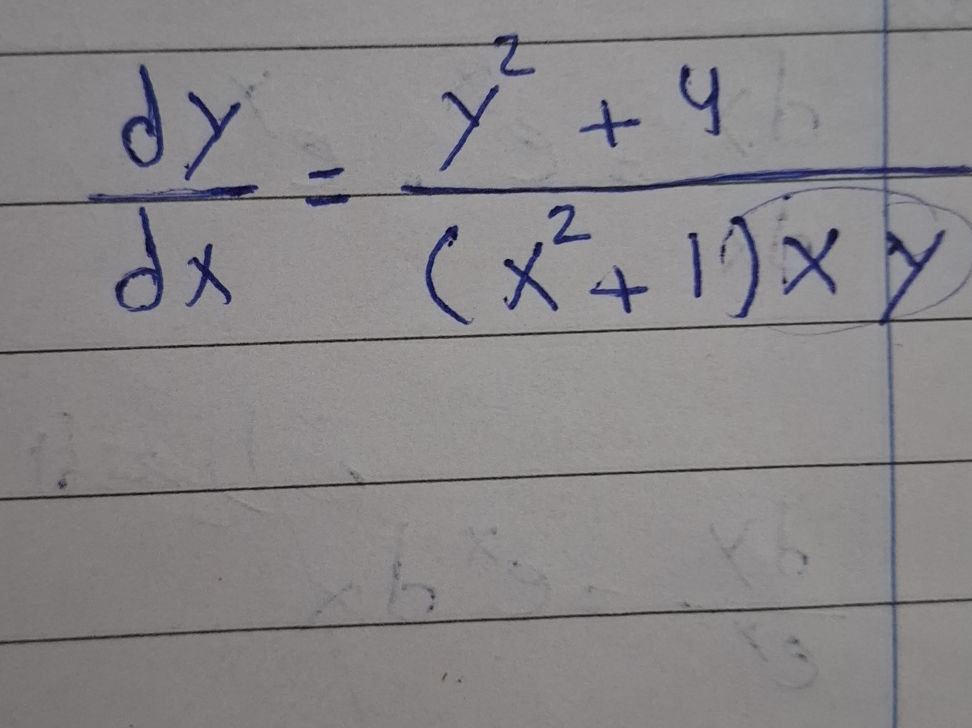 dy/dx = (y² + 4)/((x² + 1) x y)